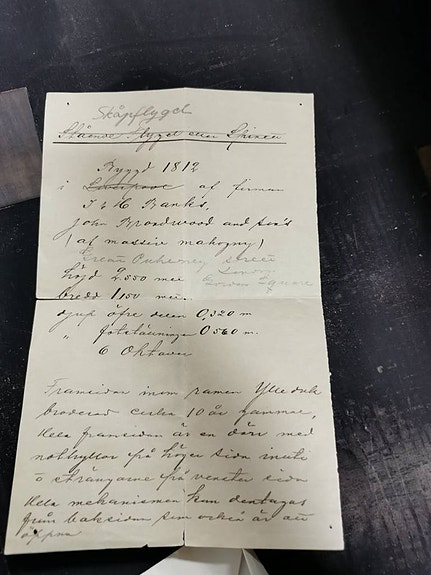 Skåpflygel
Stående flygel eller Spinett
Byggd 1812
i Liverpool af firman
T & H Banks,
John Broadwood and son's
(af massiv mahogny)
Great Pulteney street
höjd 2,550 mer London
Golden Square
bredd 1,150 mer.
djup öfre delen 0,320 m
" fotställningen 0,560 m.
6 Oktaver
Framsidan inom ramen Ylleduk
broderad cirka 10 år gammal,
Hela framsidan är en dörr med
nothyllor på höger sida inuti
o strängarne på venster sida
Hela mekanismen kan borttagas
från baksidan som också är att
öppna